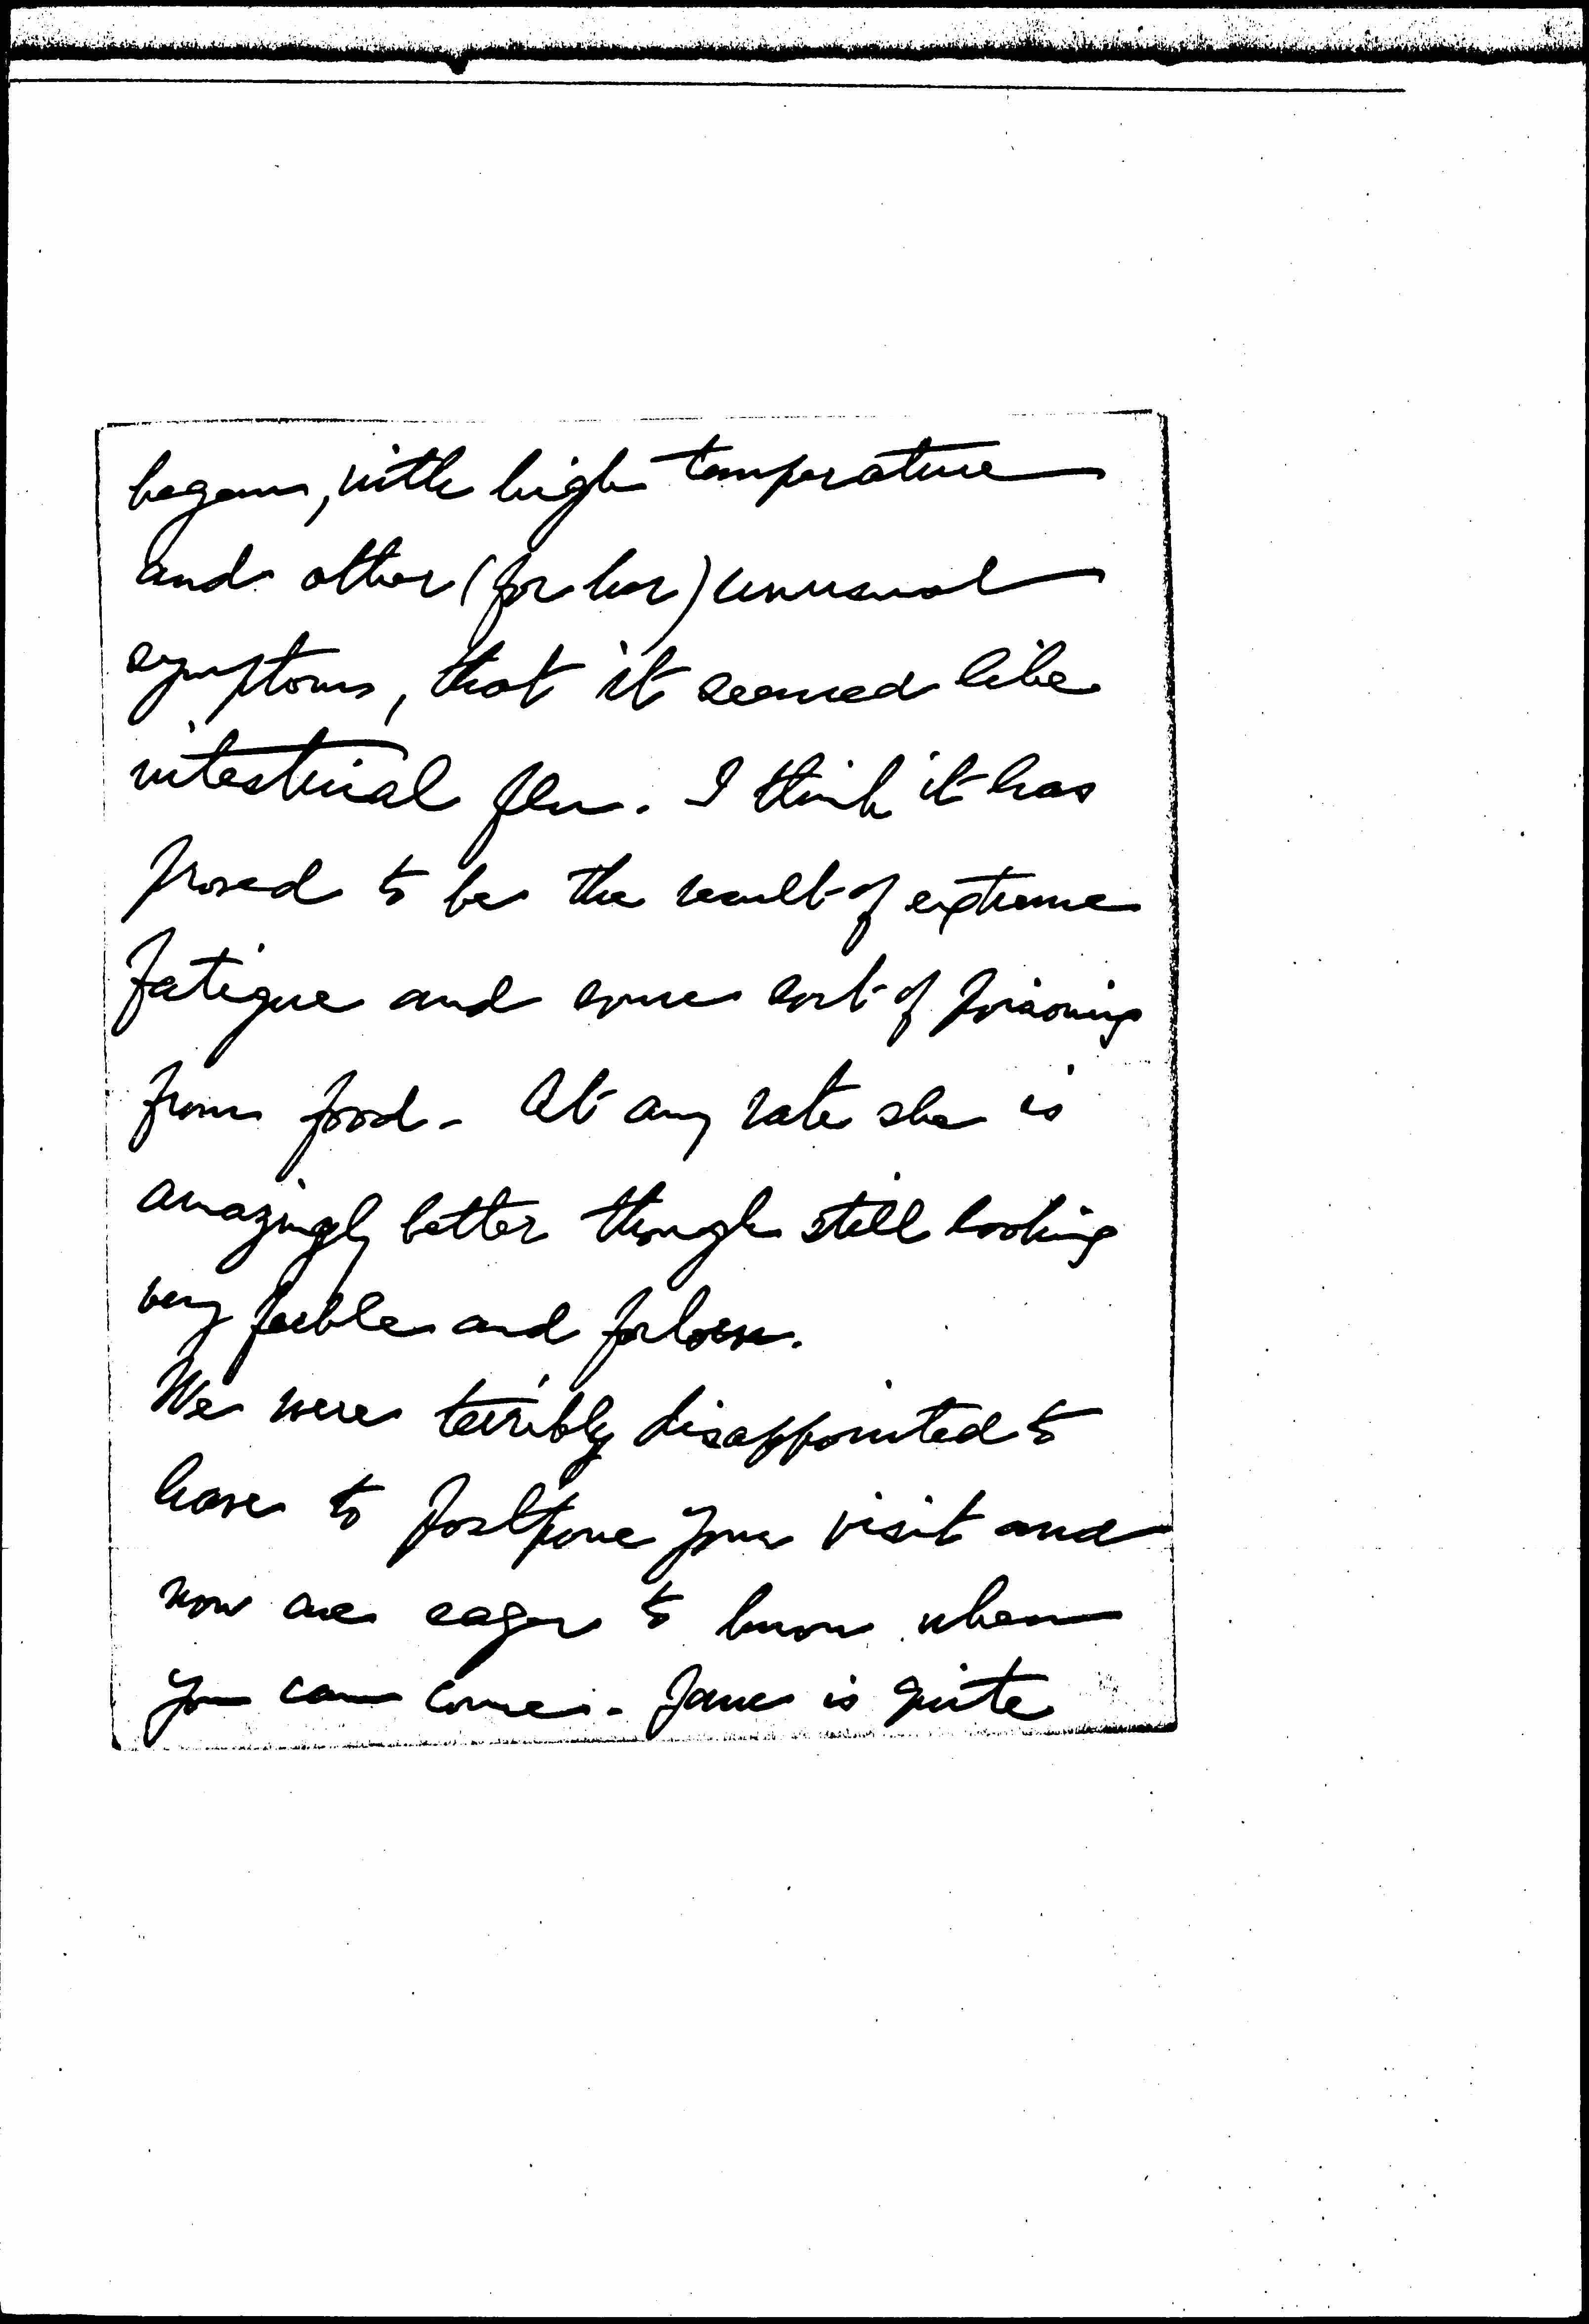 began, with high temperature
and other (for her) unusual
symptoms, that it seemed like
intestinal flu. I think it has
proved to be the result of extreme
fatigue and some sort of poisoning
from food - At any rate she is
amazingly better though still looking
very feeble and forlorn.
We were terribly disappointed to
have to postpone your visit and
now are eager to know when
you can come - Jane is quite